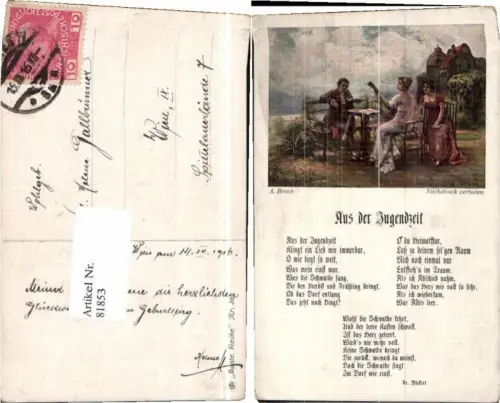 10 10
Wohlgeb.
Helene Gallbrunner
Wien, IX.
Spittelauerlände 7
Artikel Nr.
81853
Wien am 14.
Meine
die herzlichsten
Geburtstag.
A. Broch
Nachdruck verboten
Aus der Jugendzeit
Aus der Jugendzeit
Klingt ein Lied mir immerdar,
O wie liegt so weit,
Was mein einst war.
Was die Schwalbe sang,
Die den Herbst und Frühling bringt.
Ob das Dorf entlang
Das jetzt noch klingt?
O du Heimatflur,
Laß zu deinem sel'gen Raum
Mich noch einmal nur
Entflieh'n im Traum.
Als ich Abschied nahm,
War das Herz mir voll so sehr.
Als ich wiederkam,
War Alles leer.
Wohl die Schwalbe kehrt,
Und der leere Kasten schwoll.
Ist das Herz geleert,
Wird's nie mehr voll.
Keine Schwalbe bringt
Dir zurück, wonach du weinst,
Doch die Schwalbe singt
Im Dorf wie einst.
Fr. Rückert